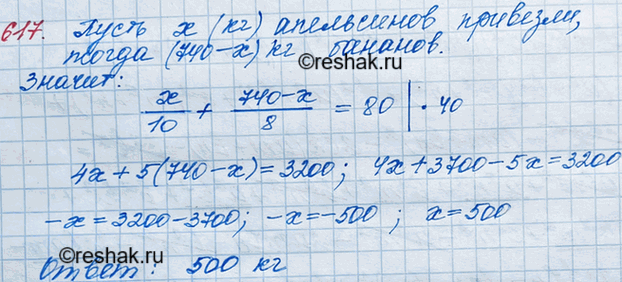 617. Пусть x (кг) апельсинов привезли,
тогда (740-x) кг бананов.
©reshak.ru
Значит:
x/10 + 740-x/8 = 80 | · 40
4x + 5(740-x) = 3200; 4x + 3700 - 5x = 3200
-x = 3200 - 3700; -x = -500; x = 500
©reshak.ru
Ответ: 500 кг